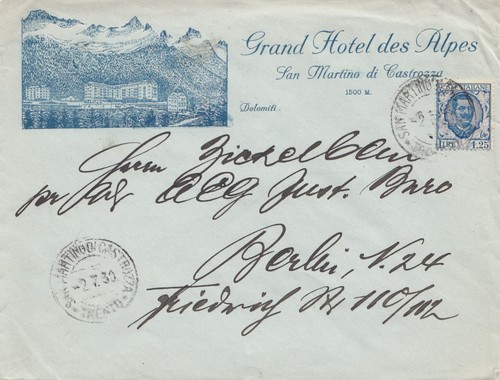 Grand Hotel des Alpes
San Martino di Castrozza
1500 M.
Dolomiti.
SAN MARTINO DI
ITALIANE
LIRE 1,25
Herrn
pr Adr AEG Just. Büro
Berlin, N. 24
Friedrich Str 110/112
SAN MARTINO DI CASTROZZA
-2.7.30
TRENTO